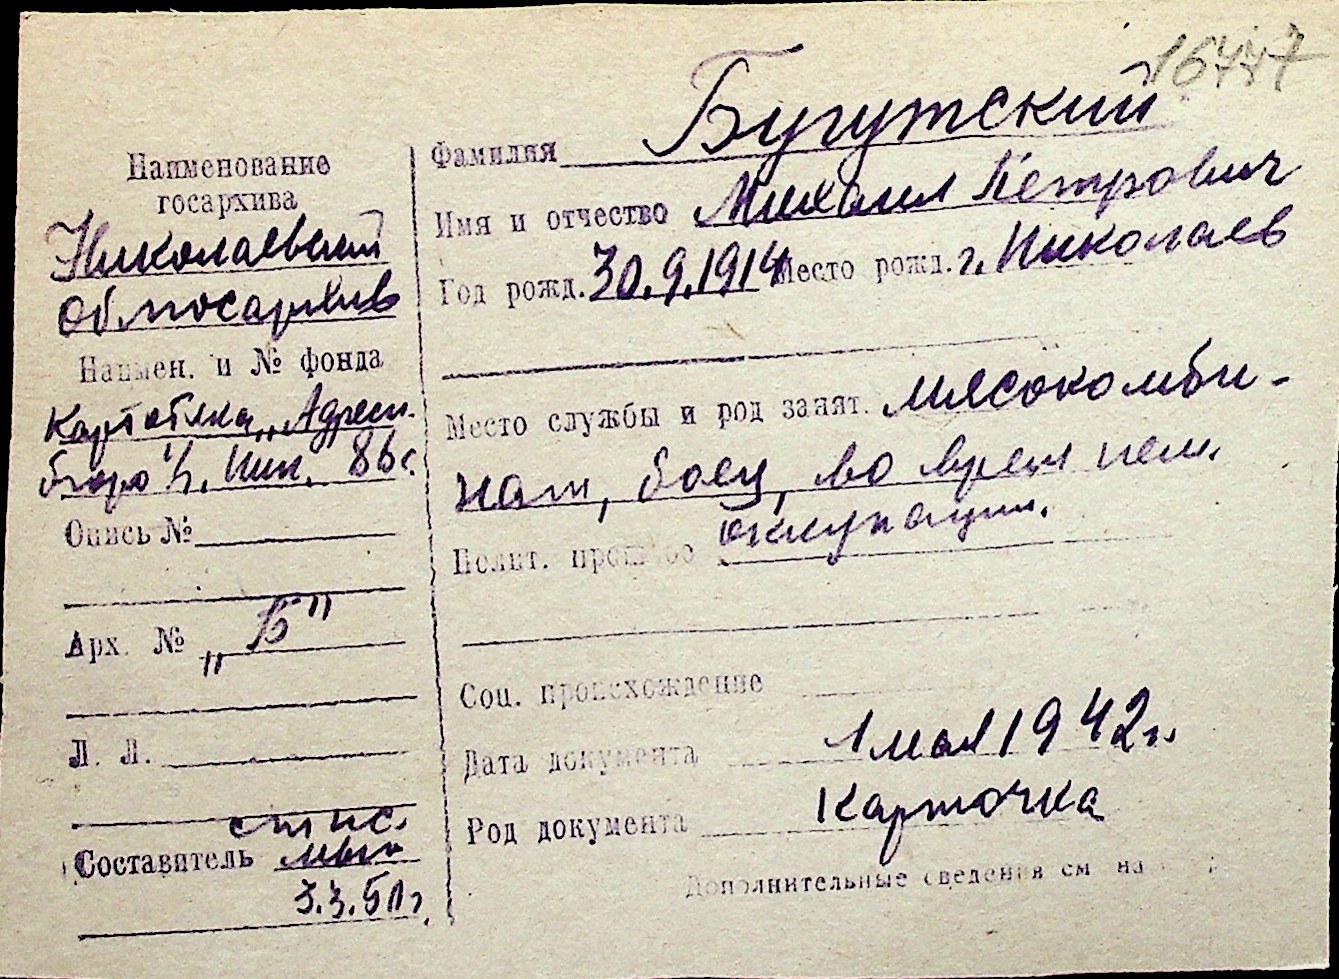 16477
Наименование
госархива
Николаевский
Облгосархив
Наимен. и № фонда
Картотека „Адресн.
бюро" г. Ник. 86 с.
Опись №
Арх. № „Б"
Л. Л.
Составитель
3.3.50 г.
Фамилия Бугутский
Имя и отчество Михаил Петрович
Год рожд. 30.9.1914 Место рожд. г. Николаев
Место службы и род занят. мясокомби-
нат, боец, во время нем.
оккупации.
Полит. прошлое
Соц. происхождение
Дата документа 1 мая 1942 г.
Род документа Карточка
Дополнительные сведения см на